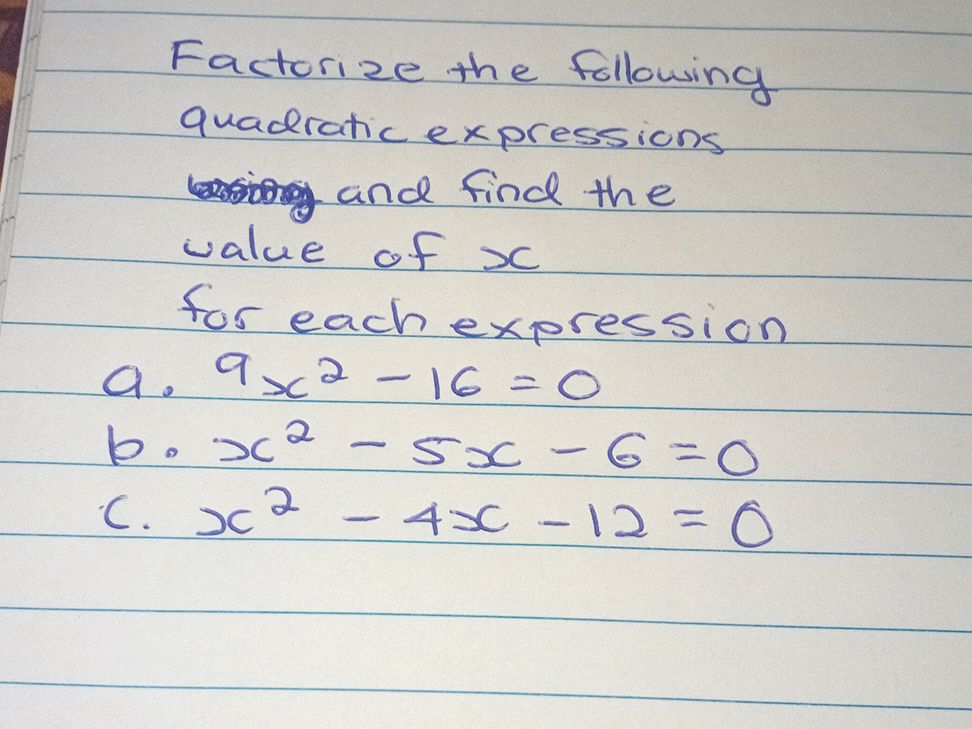 Factorize the following
quadratic expressions
and find the
value of x
for each expression
a. 9x² - 16 = 0
b. x² - 5x - 6 = 0
c. x² - 4x - 12 = 0